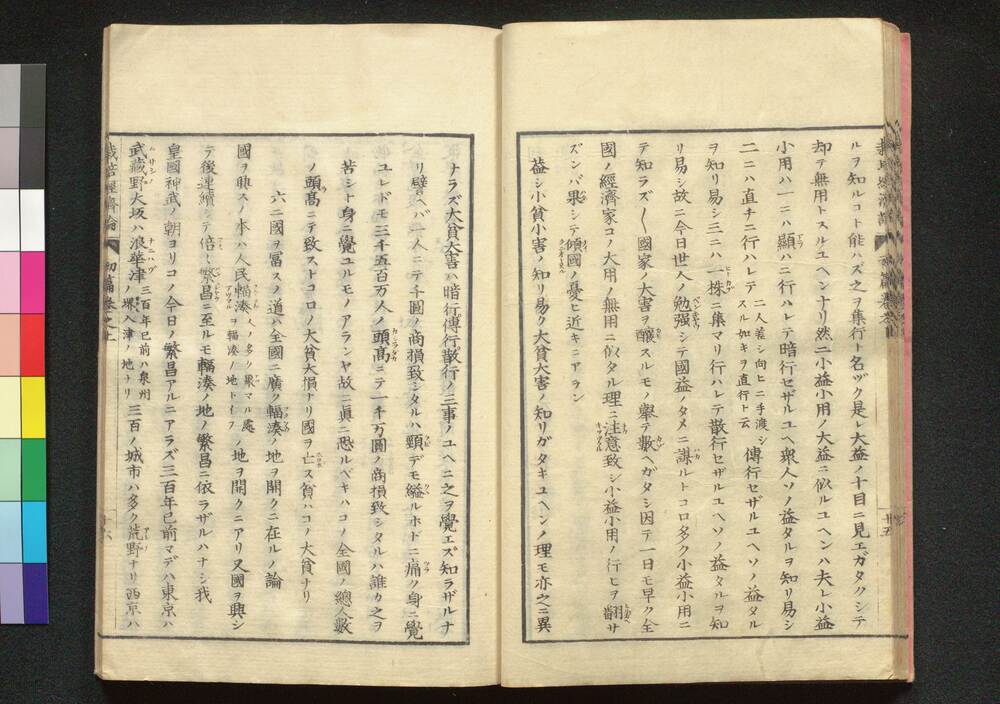 ルヲ知ルコト能ハズ之ヲ集行ト名ヅク是レ大益ノ十目ニ見エガタクシテ
却テ無用トスルユヘンナリ然ニ小益小用ノ大益ニ似ルユヘンハ夫レ小益
小用ハ一ニハ顯ハニ行ハレテ暗行セザルユヘ衆人ソノ益タルヲ知リ易シ
二ニハ直チニ行ハレテ二人差シ向ヒニ手渡シスル如キヲ直行ト云傳行セザルユヘソノ益タル
ヲ知リ易シ三ニハ一株ニ集マリ行ハレテ散行セザルユヘソノ益タルヲ知
リ易シ故ニ今日世人ノ勉强シテ國益ノタメニ謀ルトコロ多ク小益小用ニ
テ知ラズ〱國家ノ大害ヲ釀スルモノ擧テ數ヘガタシ因テ一日モ早ク全
國ノ經濟家コノ大用ノ無用ニ似タル理ニ注意致シ小益小用ノ行ヒヲ翻サ
ズンバ果シテ傾國ノ憂ヒ近キニアラン
益シ小貧小害ノ知リ易ク大貧大害ノ知リガタキユヘンノ理モ亦之ニ異
ナラズ大貧大害ハ暗行傳行散行ノ三事ノユヘニ之ヲ覺エズ知ラザルナ
リ譬ヘバ一人ニテ千圓ノ商損致シタルハ頸デモ縊ルホドニ痛ク身ニ覺
ユレドモ三千五百万人ノ頭高ニテ一千万圓ノ商損致シタルハ誰カ之ヲ
苦シト身ニ覺ユルモノアランヤ故ニ眞ニ恐ルベキハコノ全國ノ總人數
ノ頭高ニテ致ストコロノ大貧大損ナリ國ヲ亡ス貧ハコノ大貧ナリ
六ニ國ヲ富スノ道ハ全國ニ廣ク輻湊ノ地ヲ開クニ在ルノ論
國ヲ興スノ本ハ人民輻湊人ノ多ク聚マル處ヲ輻湊ノ地トイフノ地ヲ開クニアリ又國ヲ興シ
テ後連續シテ倍〻繁昌ニ至ルモ輻湊ノ地ノ繁昌ニ依ラザルハナシ我
皇國神武ノ朝ヨリコノ今日ノ繁昌アルニアラズ三百年已前マデハ東京ハ
武藏野大坂ハ浪華津三百年已前ハ泉州ノ堺ヘ津ノ地ナリ三百ノ城市ハ多ク荒野ナリ西京ハ
初篇卷之上